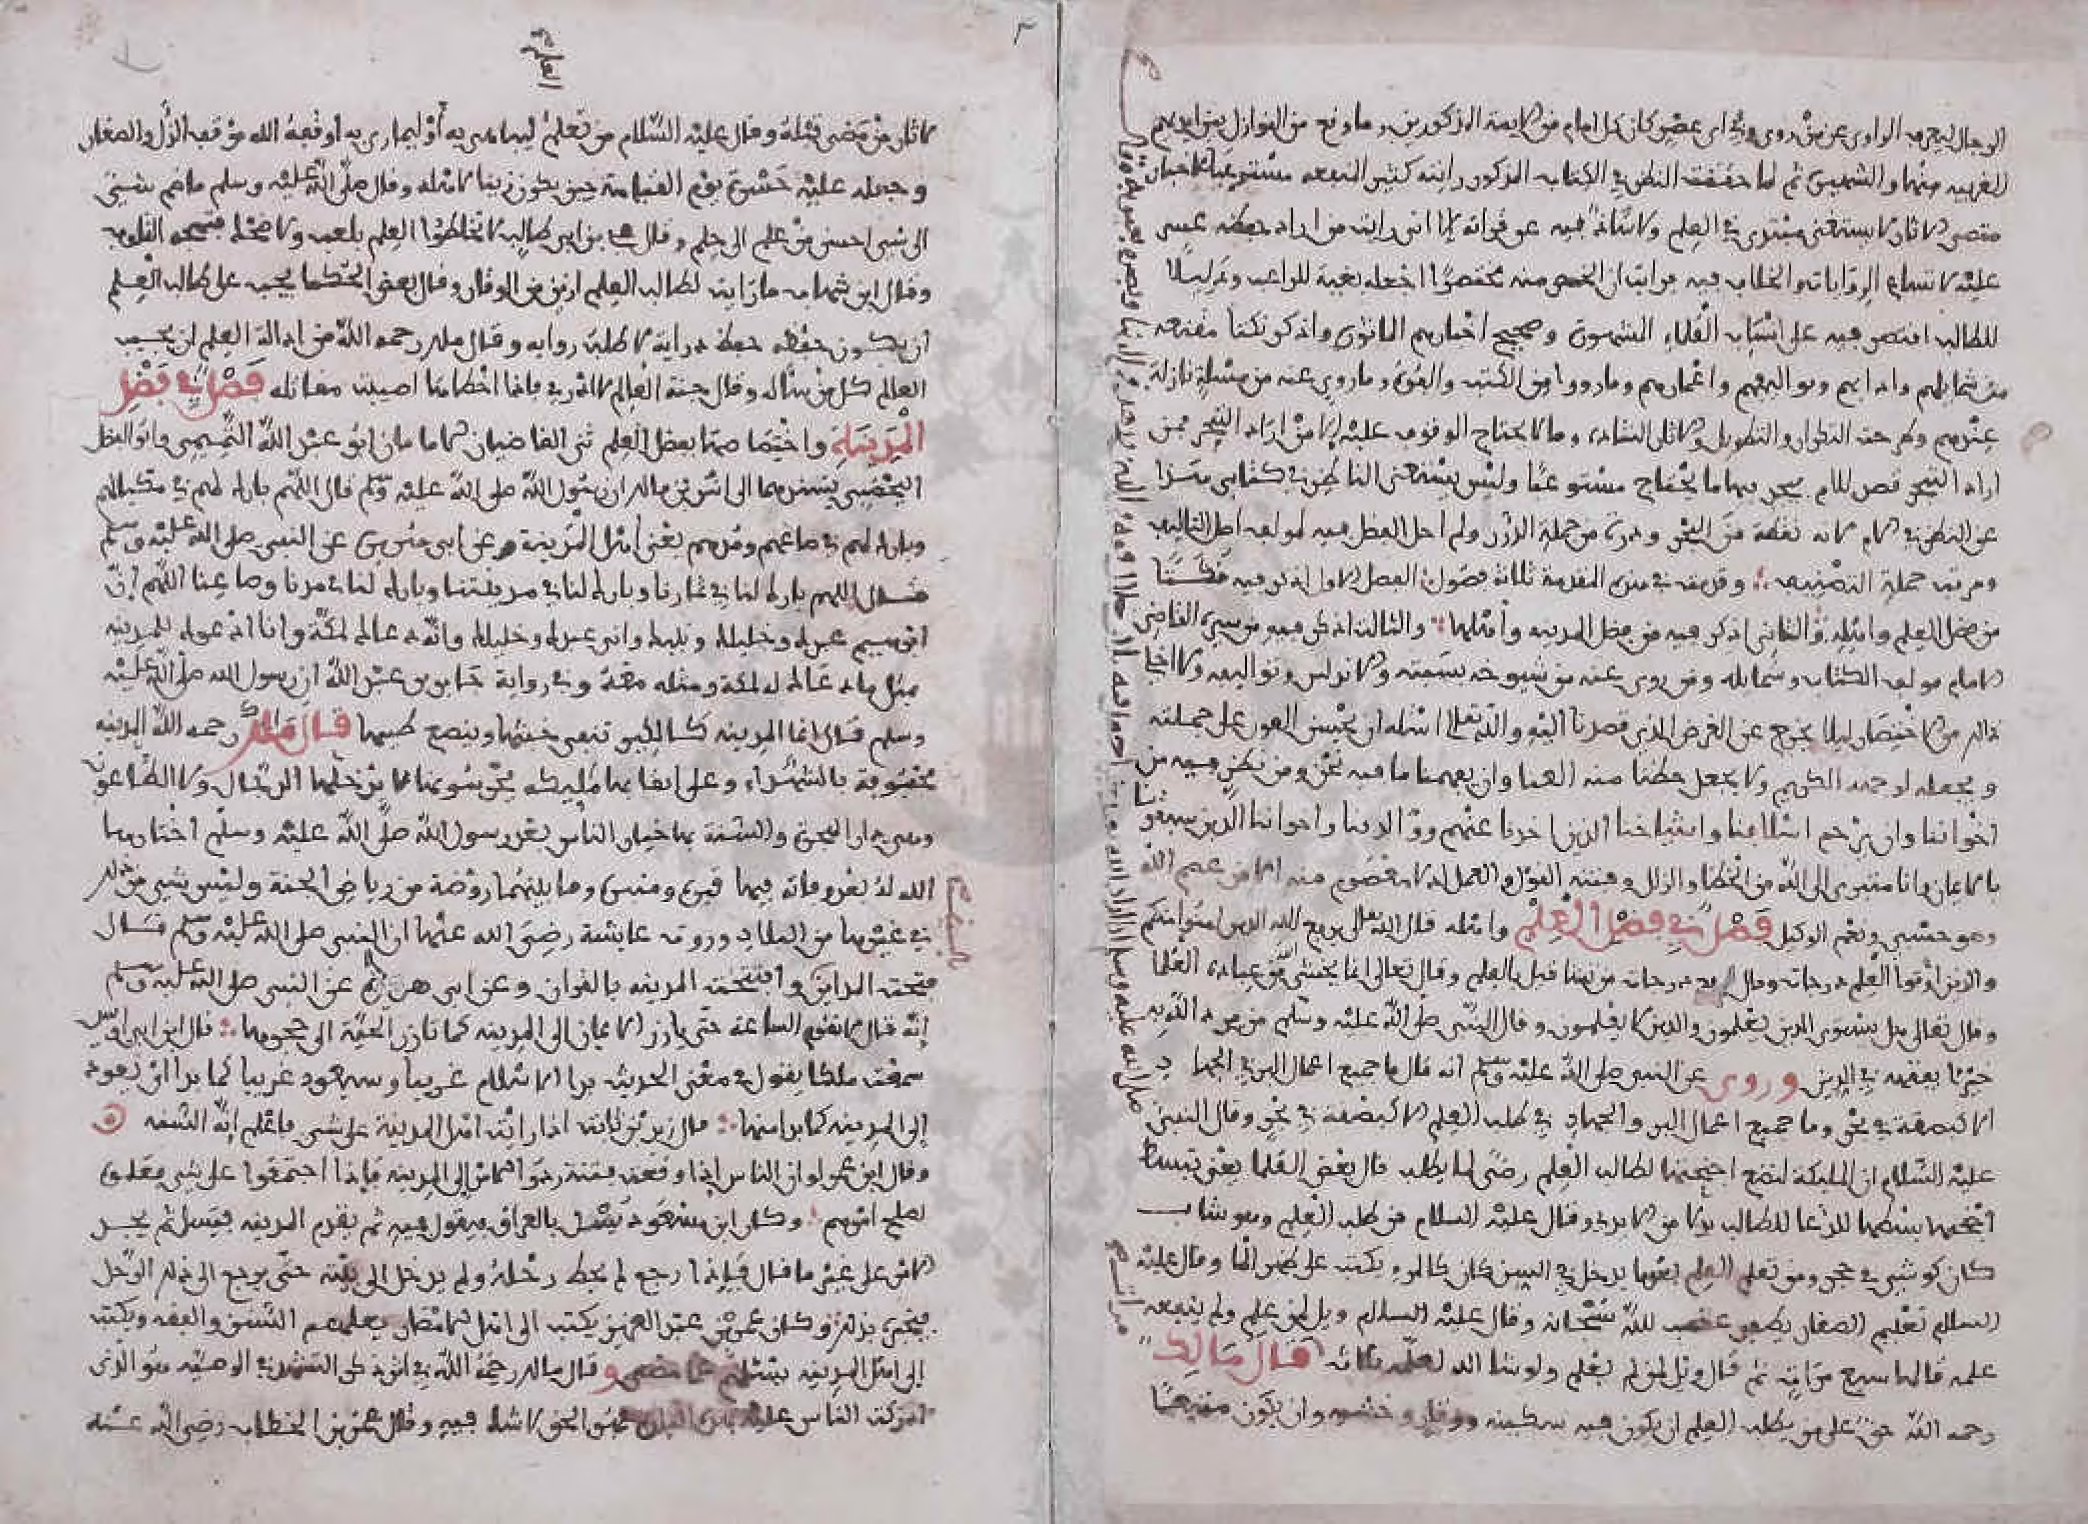 الرجال ليعرف الراوي عن من روى وفي اي عصر كان كل امام من الايمة المذكورين وما وقع من النوازل بين ايديهم
الغريبة منها والشهيرة ثم لما حققت النظر في الكتاب المذكور رايته كثير المنفعه مستوعبا للاخبار
مقتص الاثار لا يستغني مبتدي في العلم ولا شاد فيه عن قراته الا اني رايت من اراد حفظه عسر
عليه لاتساع الروايات والخطاب فيه فرايت ان الخص منه مختصرا اجعله بغية للراغب وتذليلا
للطالب اقتصر فيه على انساب الفقهاء المشهورة وصحيح اخبارهم الماثورة واذكر نكتا مقنعه
من شمايلهم وادابهم وتواليفهم واعمارهم وما رووا من الكتب وما روي عنه من مسئلة نازلة
عندهم وطرحت التكرار والتطويل وما لا يحتاج الوقوف عليه الا من اراد التبحر فمن
اراد التبحر قصد للام يجد بها ما يحتاج مستوعبا وليس يستغني الناظر في كتابي هذا
عن النظر في الام لانه نقطة من البحر ودرة من جملة الدرر ولم اخل الفضل فيه لمولفه اصل التاليف
ومرتب جملة التصنيف وقدمت في هذه المقدمة ثلاثة فصول الفصل الاول اذكر فيه
من فضل العلم واهله والثاني اذكر فيه من فضل المدينة واهلها والثالث اذكر فيه من سيرة القاضي
الامام مولف الكتاب وشمايله ومن روى عنه من شيوخه بسبته والاندلس وتواليفه
ذلك من الاختصار ليلا يخرج عن الغرض الذي قصدنا اليه والله تعلى اسئله ان يحسن العون على جملته
ويجعله لوجهه الكريم ولا يجعل حظنا منه العنا وان يعمنا ما فيه نحن ومن نظر فيه من
اخواننا وان يرحم اسلافنا واشياخنا الذين اخذنا عنهم ووالدينا واخواننا الذين سبقونا
بالايمان وانا متبري الى الله من الخطا والزلل وفتنة القول والعمل اذ لا معصوم منه الا من عصم الله
وهو حسبي ونعم الوكيل فصل في فضل العلم واهله قال الله تعلى يرفع الله الذين امنوا منكم
والذين اوتوا العلم درجات وقال نرفع درجات من نشا قيل بالعلم وقال تعالى انما يخشى الله من عباده العلما
وقال تعالى هل يستوي الذين يعلمون والذين لا يعلمون وقال النبي صلى الله عليه وسلم من يرد الله به
خيرا يفقهه في الدين وروي عن النبي صلى الله عليه وسلم انه قال ما جميع اعمال البر في الجهاد
الا كبصقة في بحر وما جميع اعمال البر والجهاد في طلب العلم الا كبصقة في بحر وقال النبي
عليه السلام ان المليكة لتضع اجنحتها لطالب العلم رضى لما يطلب قال بعض العلما يعني تبسط
اجنحتها بسطها للدعا للطالب بدلا من الايدي وقال عليه السلام من طلب العلم وهو شاب
كان كوشي في حجر ومن تعلم العلم بعدما يدخل في السن كان كالذي يكتب على ظهر الما وقال عليه
السلام تعليم الصغار يطفي غضب الله سبحانه وقال عليه السلام ويل لمن علم ولم ينفعه
علمه قالها سبع مرات ثم قال ويل لمن لم يعلم ولو شا الله لعلمه ثلاثة قال مالك
رحمه الله حق على من يطلب العلم ان يكون فيه سكينه ووقار وخشيه وان يكون متبعا
العلم
لاثار من مضى قبله وقال عليه السلام من تعلم ليباهي به او ليماري به اوقفه الله موقف الذل والصغار
وجعله عليه حسرة يوم القيامة حين يكون زينا لاهله وقال صلى الله عليه وسلم ما ضم شيئ
الى شي احسن من علم الى حلم وقال علي بن ابي طالب لا تخلطوا العلم بلعب ولا ضحك فتمجه القلوب
وقال ابن شهاب ما رايت لطالب العلم ازين من الوقار وقال بعض الحكما يجب على طالب العلم
ان يكون حفظه حفظ دراية لا طلبه رواية وقال ملك رحمه الله من اذالة العلم ان يجيب
العالم كل من ساله وقال جنة العالم لا ادري فاذا اخطاها اصيبت مقاتله فصل في فضل
المدينة واختصاصها بفضل العلم ثنى القاضيان الامامان ابو عبد الله التميمي وابو الفضل
اليحصبي بسندهما الى انس بن مالك ان رسول الله صلى الله عليه وسلم قال اللهم بارك لهم في مكيالهم
وبارك لهم في صاعهم ومدهم يعني اهل المدينة وعن ابي هريرة عن النبي صلى الله عليه وسلم
قال اللهم بارك لنا في ثمارنا وبارك لنا في مدينتنا وبارك لنا في مدنا وصاعنا اللهم ان
ابرهيم عبدك وخليلك ونبيك واني عبدك وخليلك وانه دعاك لمكة وانا ادعوك للمدينه
مثل ما دعاك له لمكة ومثله معه وفي رواية جابر بن عبد الله ان رسول الله صلى الله عليه
وسلم قال انما المدينه كالكير تنفي خبثها وينصع طيبها قال ملك رحمه الله المدينه
محفوفة بالشهداء وعلى انقابها مليكه يحرسونها لا يدخلها الدجال ولا الطاعون
وهي دار الهجرة والسنة بها خيار الناس بعد رسول الله صلى الله عليه وسلم اختارها
الله له بعد وفاته فيها قبره ومنبره وما بينهما روضة من رياض الجنة وليس شي من ذلك
في غيرها من البلاد وروت عايشة رضي الله عنها ان النبي صلى الله عليه وسلم قال
فتحت المداين وافتتحت المدينه بالقران وعن ابي هريرة عن النبي صلى الله عليه وسلم
انه قال لا تقوم الساعة حتى يارز الايمان الى المدينه كما تارز الحية الى جحرها قال ابن ابي اويس
سمعت ملكا يقول في معنى الحديث بدا الاسلام غريبا وسيعود غريبا كما بدا اي يعود
الى المدينه كما بدا منها قال زيد بن ثابت اذا رايت اهل المدينة على شي فاعلم انه السنه
وقال ابن عمر لو ان الناس اذا وقعت فتنة ردوا الامر الى المدينه فاذا اجتمعوا على شي فعلوه
لصلح امرهم وكان ابن مسعود يسئل بالعراق فيقول فيه ثم يقدم المدينه فيسئل ثم يجد
الامر على غير ما قال فاذا رجع لم يحط رحله ولم يدخل الى بيته حتى يرجع الى ذلك الرجل
فيخبره بذلك وكان عمر بن عبد العزيز يكتب الى اهل الامصار يعلمهم السنن والفقه ويكتب
الى اهل المدينه يسئلهم عما مضى وقال مالك رحمه الله في انه ذكر التشهد في الوصيه هو الذي
ادركت الناس عليه بهذه البلدة فهو الحق لا شك فيه وقال عمر بن الخطاب رضي الله عنه